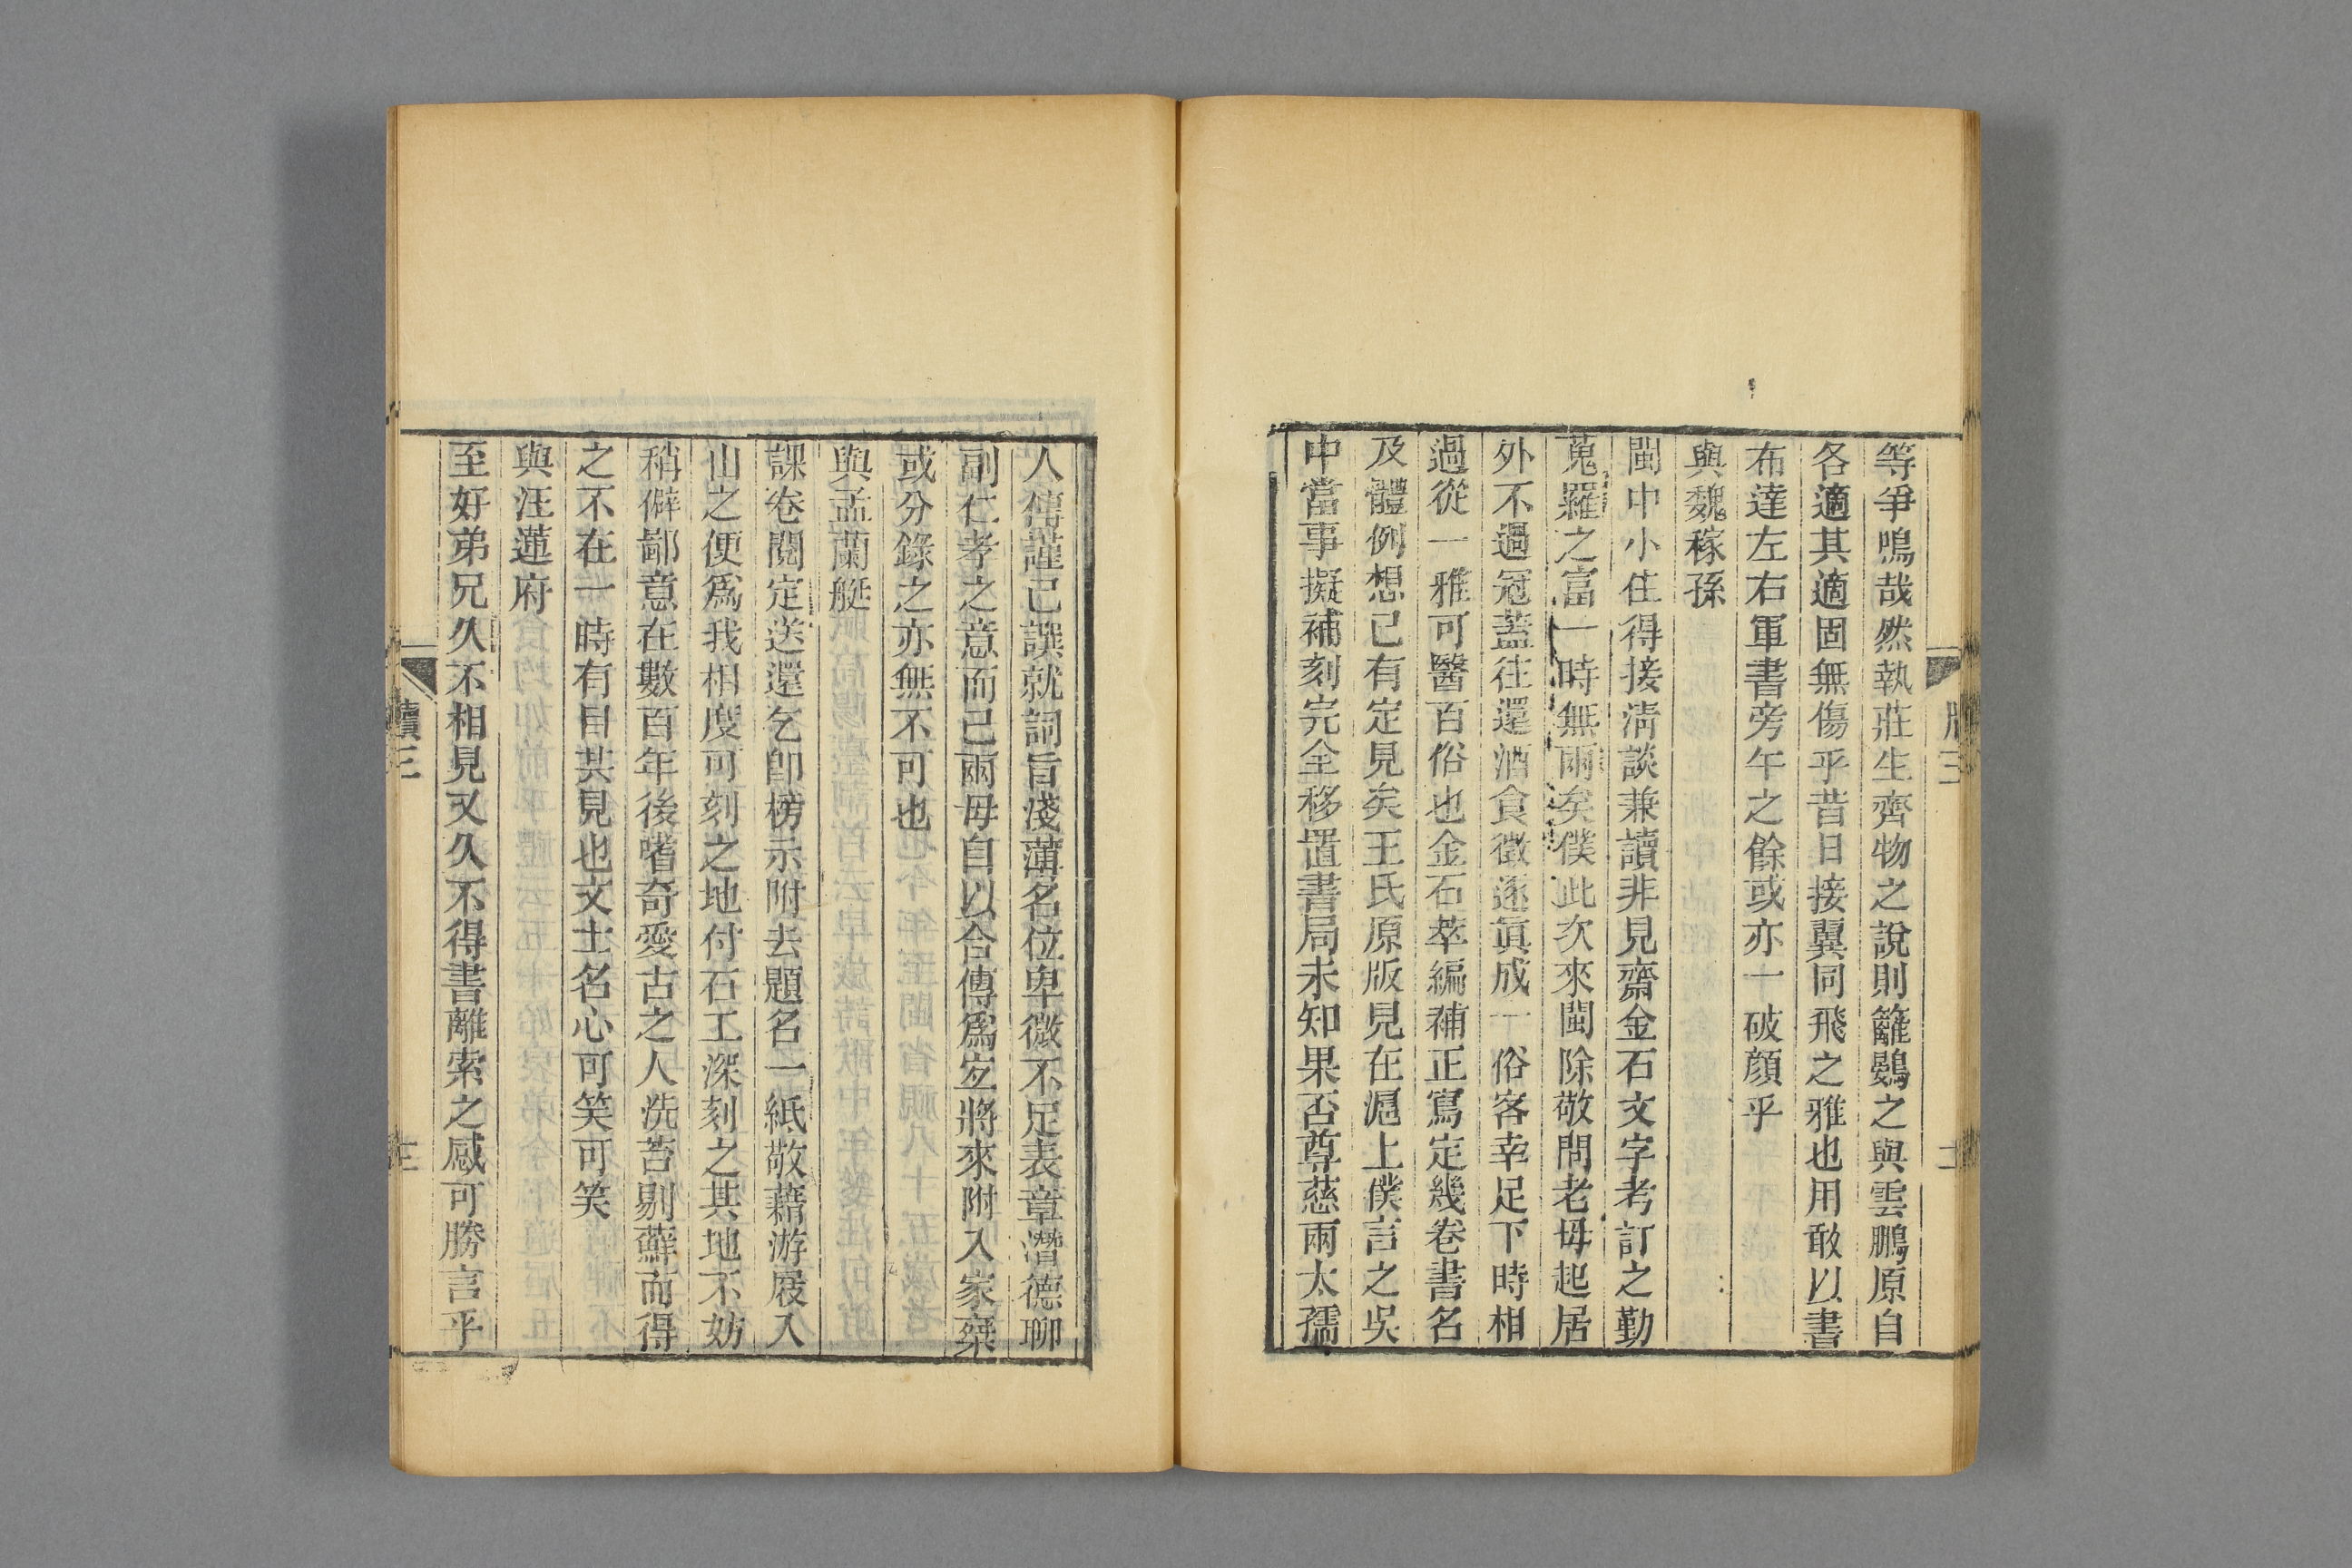 等爭鳴哉然執莊生齊物之說則籬鷃之與雲鵬原自
各適其適固無傷乎昔日接翼同飛之雅也用敢以書
布達左右軍書旁午之餘或亦一破顔乎
與魏稼孫
閩中小住得接淸談兼讀非見齋金石文字考訂之勤
蒐羅之富一時無兩矣僕此次來閩除敬問老母起居
外不過冠蓋往還酒食徵逐眞成一俗客幸足下時相
過從一雅可醫百俗也金石萃編補正寫定幾卷書名
及體例想已有定見矣王氏原版見在滬上僕言之吳
中當事擬補刻完全移置書局未知果否尊慈兩太孺
人傳謹已譔就詞旨淺薄名位卑微不足表章潛德聊
副仁孝之意而已兩母自以合傳爲宐將來附入家椉
或分錄之亦無不可也
與孟蘭艇
課卷閱定送還乞卽榜示附去題名一紙敬藉游屐入
山之便爲我相度可刻之地付石工深刻之其地不妨
稍僻鄙意在數百年後嗜奇愛古之人洗苔剔蘚而得
之不在一時有目共見也文士名心可笑可笑
與汪蓮府
至好弟兄久不相見又久不得書離索之感可勝言乎
牘三